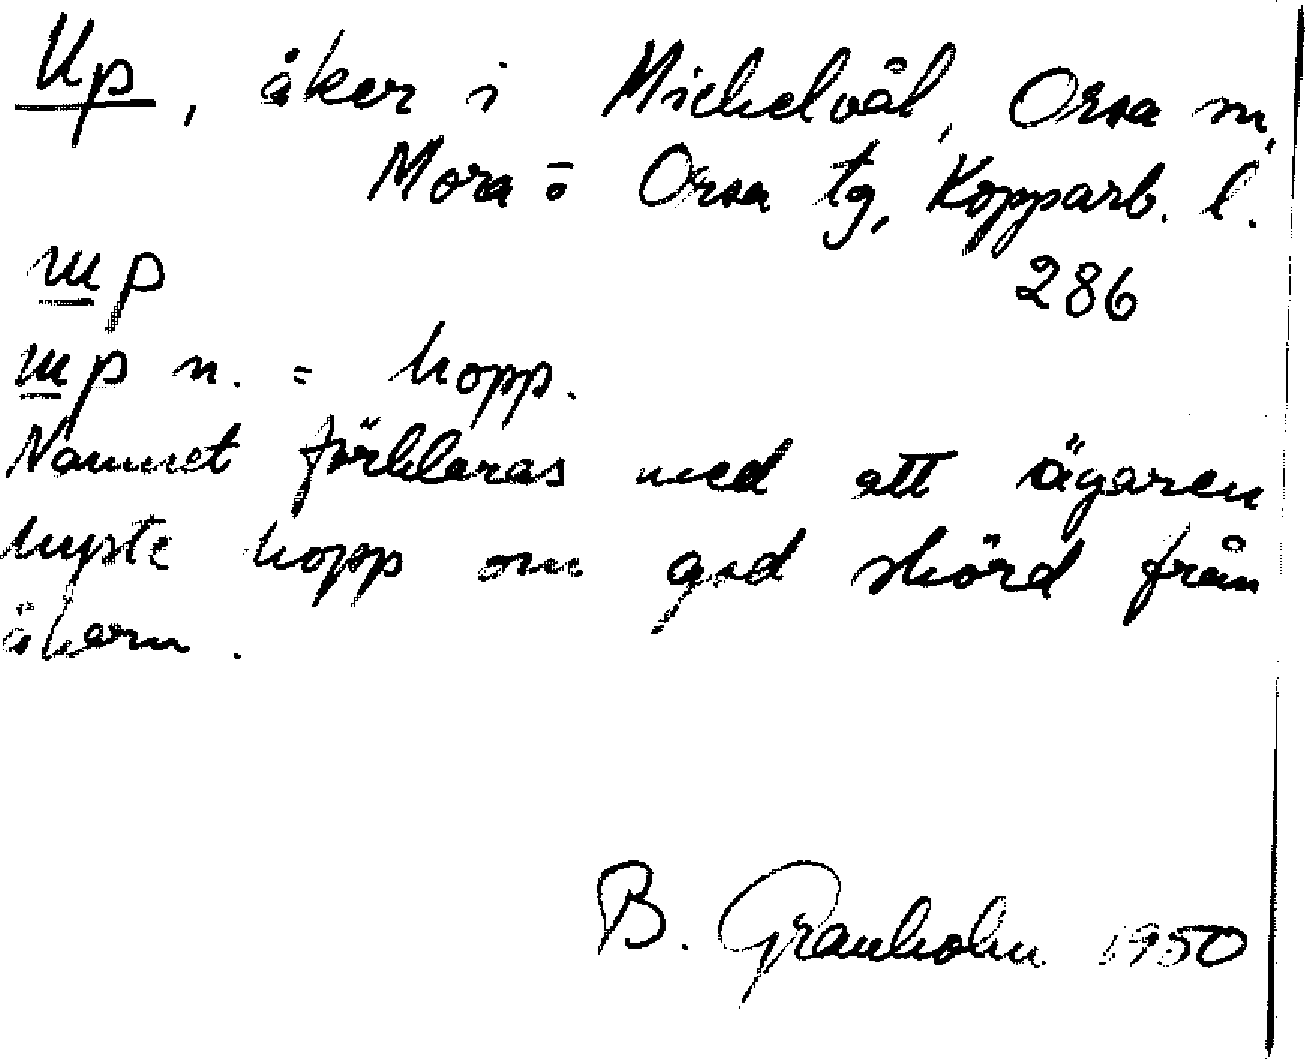 Up, åker i Mickelvål, Orsa m,
Mora o Orsa tg, Kopparb. l.
286
p
p n. = hopp.
Namnet förklaras med att ägaren
hyste hopp om god skörd från
åkern.
B. Granholm 1950